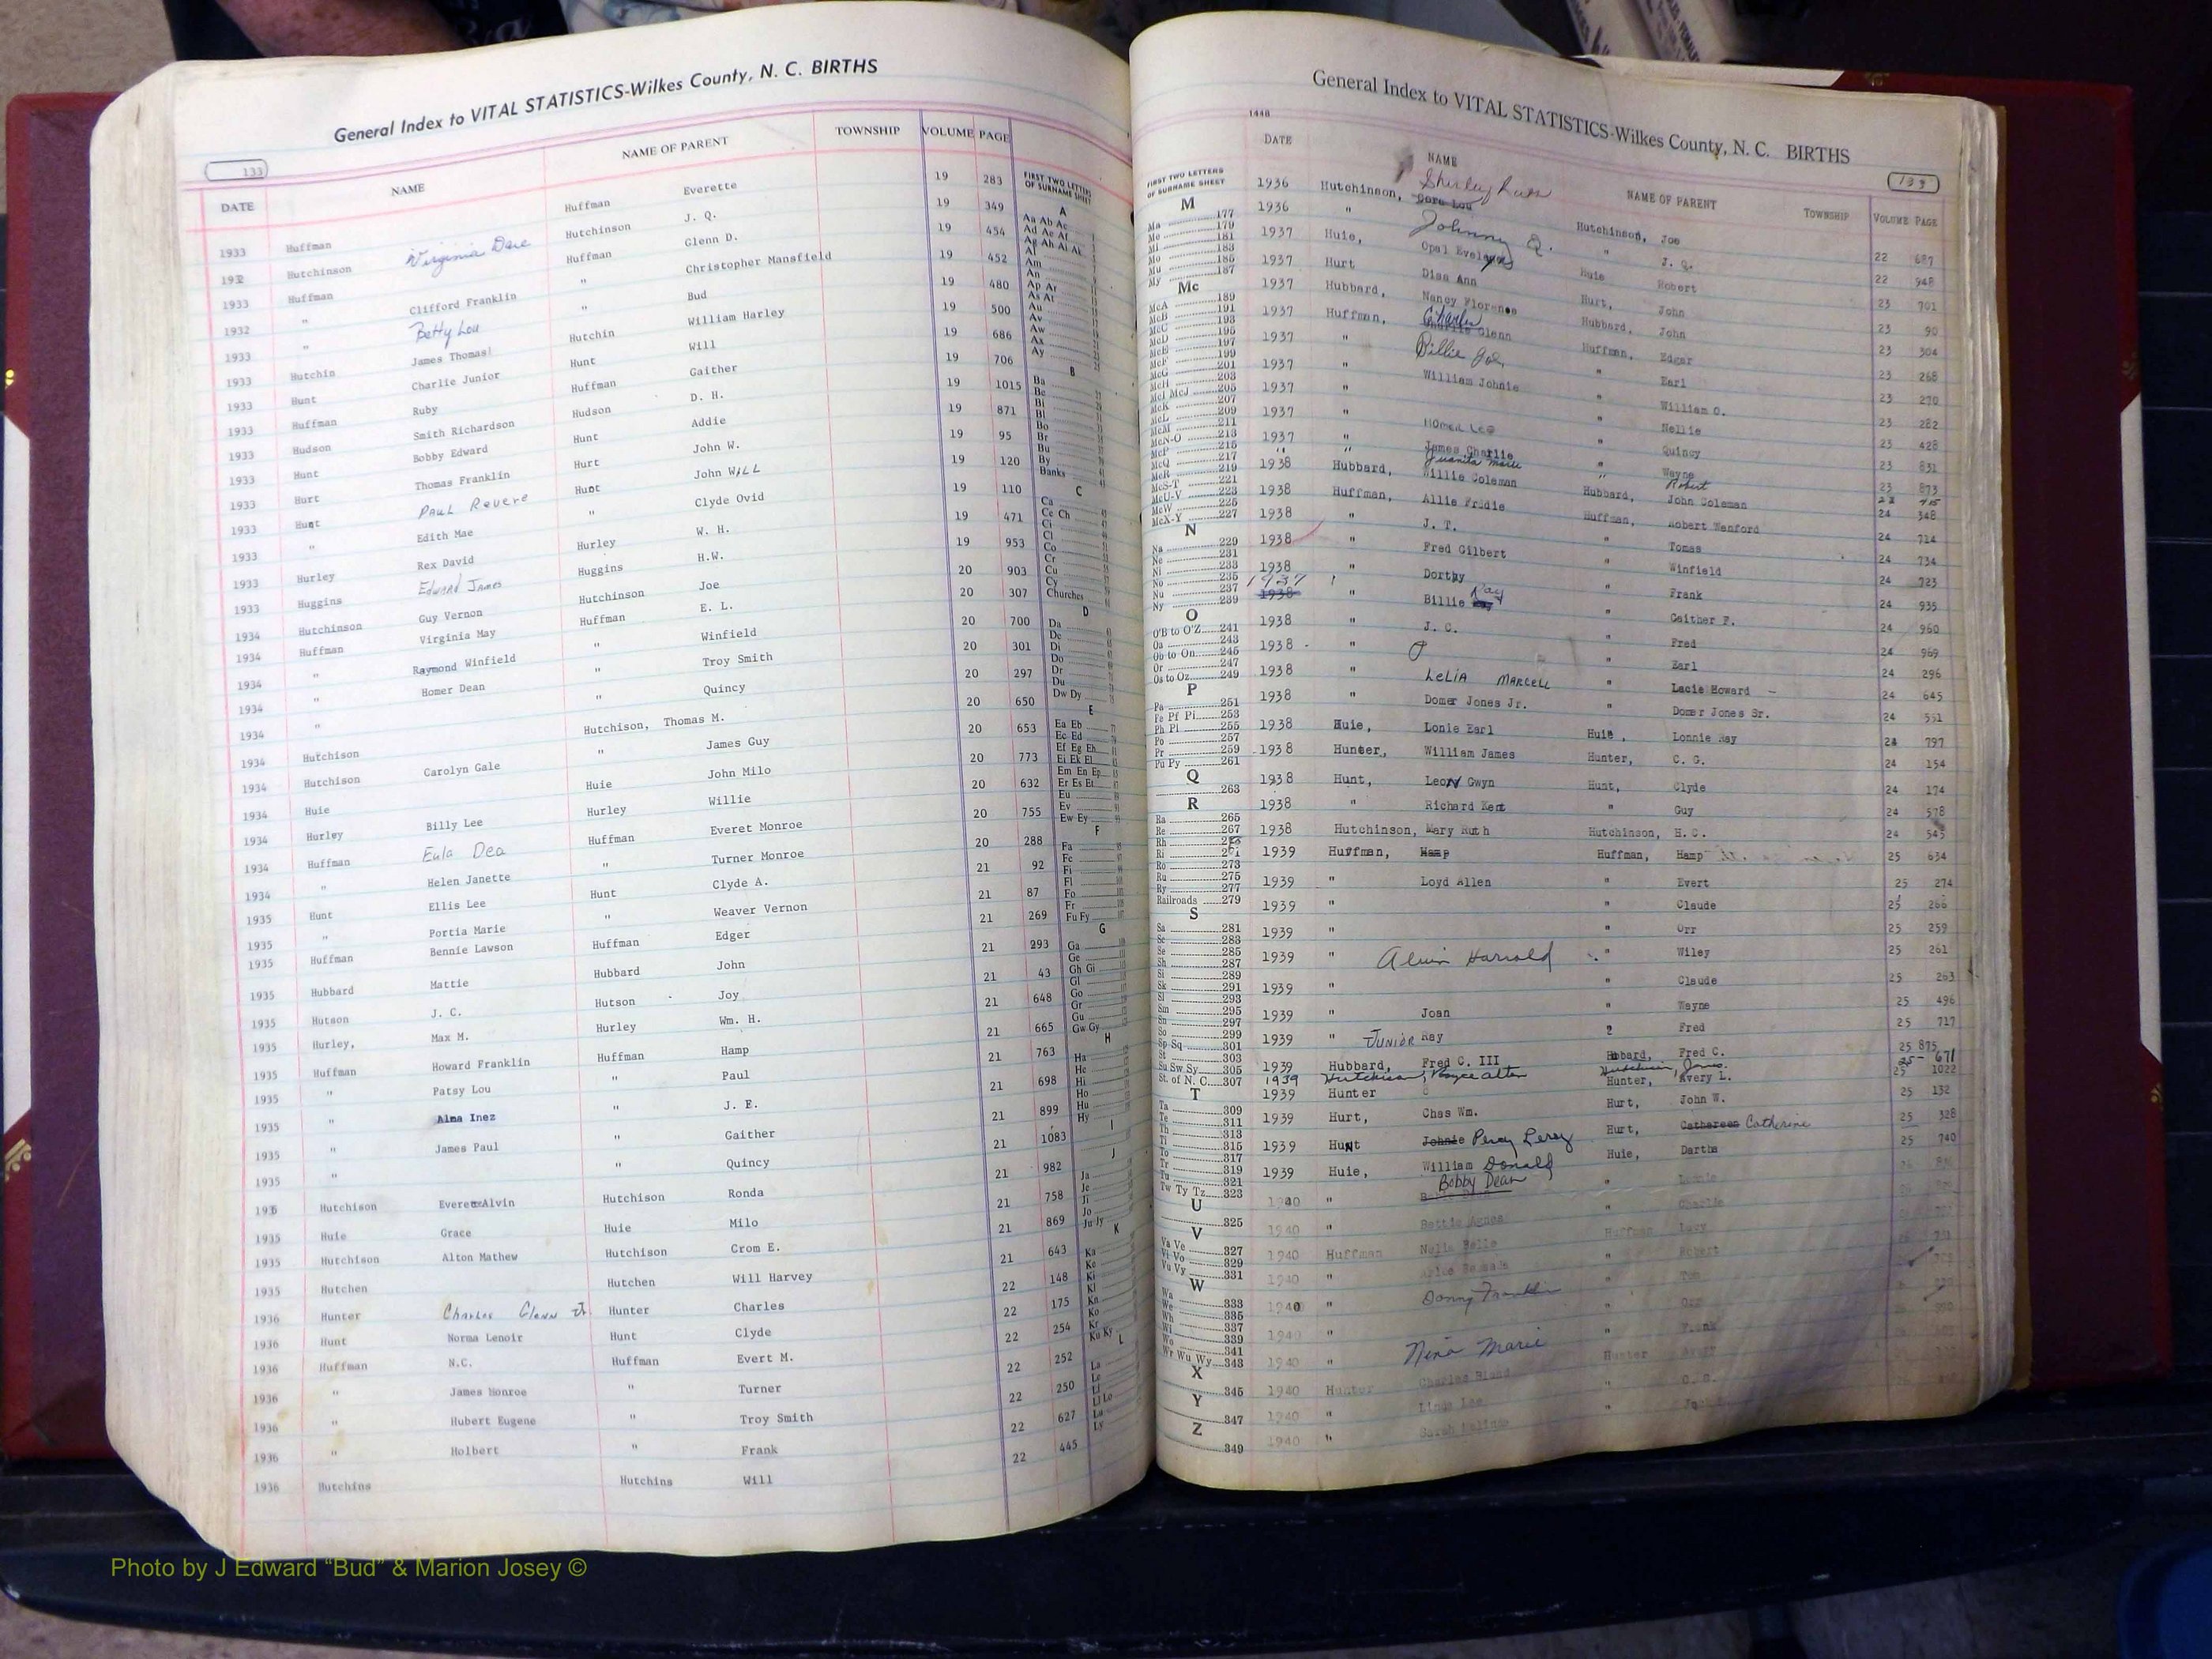 General Index to VITAL STATISTICS-Wilkes County, N. C. BIRTHS
133
DATE NAME NAME OF PARENT TOWNSHIP VOLUME PAGE
1933 Huffman Huffman Everette 19 283
193 Hutchinson Virginia Dare Hutchinson J. Q. 19 349
1933 Huffman Huffman Glenn D. 19 454
1932 " Clifford Franklin " Christopher Mansfield 19 452
1933 " Betty Lou " Bud 19 480
1933 Hutchin James Thomas Hutchin William Harley 19 500
1933 Hunt Charlie Junior Hunt Will 19 686
1933 Huffman Ruby Huffman Gaither 19 706
1933 Hudson Smith Richardson Hudson D. H. 19 1015
1933 Hunt Bobby Edward Hunt Addie 19 871
1933 Hurt Thomas Franklin Hurt John W. 19 95
1933 Hunt Paul Revere Hunt John Will 19 120
1933 " Edith Mae " Clyde Ovid 19 110
1933 Hurley Rex David Hurley W. H. 19 471
1933 Huggins Edward James Huggins H.W. 19 953
1934 Hutchinson Guy Vernon Hutchinson Joe 20 903
1934 Huffman Virginia May Huffman E. L. 20 307
1934 " Raymond Winfield " Winfield 20 700
1934 " Homer Dean " Troy Smith 20 301
1934 " " Quincy 20 297
1934 Hutchison Hutchison, Thomas M. 20 650
1934 Hutchison Carolyn Gale " James Guy 20 653
1934 Huie Huie John Milo 20 773
1934 Hurley Billy Lee Hurley Willie 20 632
1934 Huffman Eula Dea Huffman Everet Monroe 20 755
1934 " Helen Janette " Turner Monroe 20 288
1935 Hunt Ellis Lee Hunt Clyde A. 21 92
1935 " Portia Marie " Weaver Vernon 21 87
1935 Huffman Bennie Lawson Huffman Edger 21 269
1935 Hubbard Mattie Hubbard John 21 293
1935 Hutson J. C. Hutson Joy 21 43
1935 Hurley, Max M. Hurley Wm. H. 21 648
1935 Huffman Howard Franklin Huffman Hamp 21 665
1935 " Patsy Lou " Paul 21 763
1935 " Alma Inez " J. E. 21 698
1935 " James Paul " Gaither 21 899
1935 " " Quincy 21 1083
Hutchison Alvin Hutchison Ronda 21 982
1935 Huie Grace Huie Milo 21 758
1935 Hutchison Alton Mathew Hutchison Crom E. 21 869
1935 Hutchen Hutchen Will Harvey 21 643
1936 Hunter Charles Glenn Jr. Hunter Charles 22 148
1936 Hunt Norma Lenoir Hunt Clyde 22 175
1936 Huffman N.C. Huffman Evert M. 22 254
1936 " James Monroe " Turner 22 252
1936 " Hubert Eugene " Troy Smith 22 250
1936 " Holbert " Frank 22 627
1936 Hutchins Hutchins Will 22 445
FIRST TWO LETTERS
OF SURNAME SHEET
A
Aa Ab Ac
Ad Ae Af
Ag Ah Ai Ak
Al
Am
An
Ap Ar
As At
Au
Av
Aw
Ax
Ay
B
Ba
Be
Bi
Bl
Bo
Br
Bu
By
Banks
C
Ca
Ce Ch
Ci
Cl
Co
Cr
Cu
Cy
Churches
D
Da
De
Di
Do
Dr
Du
Dw Dy
E
Ea Eb
Ec Ed
Ef Eg Eh
Ei Ek El
Em En Ep
Er Es Et
Eu
Ev
Ew Ey
F
Fa
Fe
Fi
Fl
Fo
Fr
Fu Fy
G
Ga
Ge
Gh Gi
Gl
Go
Gr
Gu
Gw Gy
H
Ha
He
Hi
Ho
Hu
Hy
I
J
Ja
Je
Ji
Jo
Ju Jy
K
Ka
Ke
Ki
Kl
Kn
Ko
Kr
Ku Ky
L
La
Le
Li
Ll Lo
Lu
Ly
General Index to VITAL STATISTICS-Wilkes County, N. C. BIRTHS
1448
133
DATE NAME NAME OF PARENT TOWNSHIP VOLUME PAGE
FIRST TWO LETTERS
OF SURNAME SHEET
M
Ma 177
Me 179
Mi 181
Mo 183
Mu 185
My 187
Mc
McA 189
McB 191
McC 193
McD 195
McE 197
McF 199
McG 201
McH 203
McI McJ 205
McK 207
McL 209
McM 211
McN-O 213
McP 215
McQ 217
McR 219
McS-T 221
McU-V 223
McW 225
McX-Y 227
N
Na 229
Ne 231
Ni 233
No 235
Nu 237
Ny 239
O
O'B to O'Z 241
Oa 243
Ob to On 245
Or 247
Os to Oz 249
P
Pa 251
Pe Pf Pi 253
Ph Pl 255
Po 257
Pr 259
Pu Py 261
Q
263
R
Ra 265
Re 267
Rh
Ri 271
Ro 273
Ru 275
Ry 277
Railroads 279
S
Sa 281
Sc 283
Se 285
Sh 287
Si 289
Sk 291
Sl 293
Sm 295
Sn 297
So 299
Sp Sq 301
St 303
Su Sw Sy 305
St. of N. C. 307
T
Ta 309
Te 311
Th 313
Ti 315
To 317
Tr 319
Tu 321
Tw Ty Tz 323
U
325
V
Va Ve 327
Vi Vo 329
Vu Vy 331
W
Wa 333
We 335
Wh 337
Wi 339
Wo 341
Wr Wu Wy 343
X
345
Y
347
Z
349
1936 Hutchinson, Shirley Cora Lou Hutchinson, Joe 22 687
1936 " Johnny Q. " J. Q. 22 948
1937 Huie, Opal Huie Robert 23 701
1937 Hurt Diza Ann Hurt, John 23 90
1937 Hubbard, Nancy Florence Hubbard, John 23 304
1937 Huffman, Charles Glenn Huffman, Edgar 23 268
1937 " Billie Joe " Earl 23 270
1937 " William Johnie " William O. 23 282
1937 " " Nellie 23 428
1937 " Homer Lee " Quincy 23 831
1937 " James Charlie " Wayne 23 873
" " Juanita Marie " Robert
1938 Hubbard, Willie Coleman Hubbard, John Coleman 24 348
1938 Huffman, Allie Huffman, Robert Wanford 24 714
1938 " J. T. " Tomas 24 734
1938 " Fred Gilbert " Winfield 24 723
1938 " Dorthy " Frank 24 935
1937 1938 " Billie Ray " Gaither F. 24 960
1938 " J. C. " Fred 24 969
1938 " " Earl 24 296
1938 " Lelia Marcell " Lacie Howard 24 645
1938 " Domer Jones Jr. " Domer Jones Sr. 24 551
1938 Huie, Lonie Earl Huie, Lonnie Ray 24 797
1938 Hunter, William James Hunter, C. G. 24 154
1938 Hunt, Leon Gwyn Hunt, Clyde 24 174
1938 " Richard Kent " Guy 24 578
1938 Hutchinson, Mary Ruth Hutchinson, H. C. 24 545
1939 Huffman, Hamp Huffman, Hamp 25 634
1939 " Loyd Allen " Evert 25 274
1939 " " Claude 25 266
1939 " " Orr 25 259
1939 " Alvin Harrold " Wiley 25 261
1939 " " Claude 25 263
1939 " Joan " Wayne 25 496
1939 " Junior Ray ? Fred 25 717
1939 Hubbard, Fred C. III Hubbard, Fred C. 25 875
1939 Hutchison, Royce Alton Hutchison, 25 671
1939 Hunter Hunter, Avery L. 25 1022
1939 Hurt, Chas Wm. Hurt, John W. 25 132
1939 Hunt Johnie Percy Leroy Hurt, Cathereen Catherine 25 328
1939 Huie, William Donald Huie, Dartha 25 740
1940 " Bobby Dean "
1940 " Bettie Agnes " Charlie
1940 Huffman Nelia Belle Huffman Lucy
1940 " " Robert
1940 " Donny Franklin " Tom
1940 "
1940 " Nina Marie " Frank
1940 Hunter Charles Hunter
1940 " Linda Lee "
1940 " Sarah "
Photo by J Edward “Bud” & Marion Josey ©